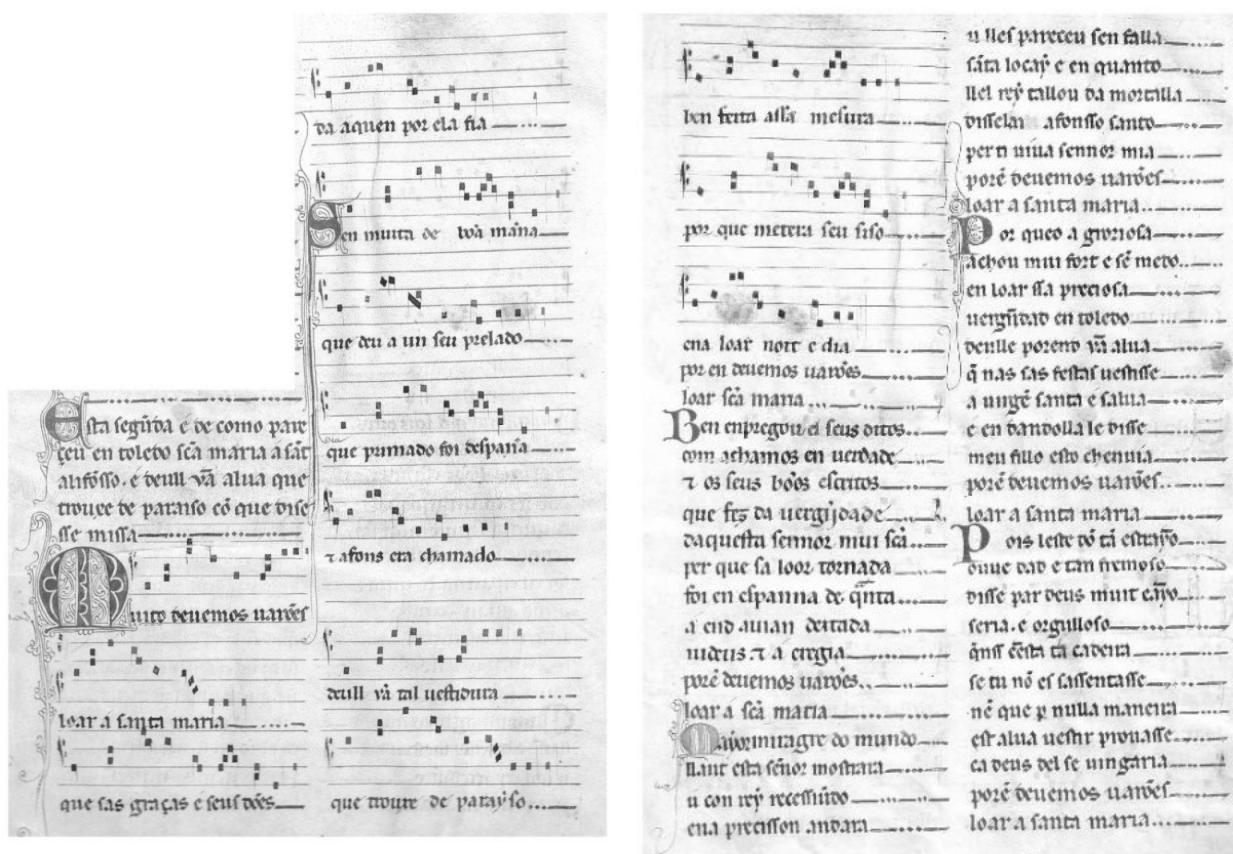 Esta segũda e de como pare
çeu en toledo scã maria a sãt
alifõsso. e deull ũa alua que
trouxe de parayso cõ que disse
sse missa
Muito deuemos uarões
loar a santa maria
que sas graças e seus dões
da aquen por ela fia
Sen muita de bõa mãna
que deu a un seu prelado
que primado foi despanna
τ afons era chamado
deull ũa tal uestidura
que trouxe de parayso
ben feita assa mesura
por que metera seu siso
ena loar noit e dia
por en deuemos uarões
loar scã maria
Ben enpregou el seus ditos
com achamos en uerdade
τ os seus bõos escritos
que fez da uergĩidade
daquesta sennor mui scã
per que sa loor tornada
foi en espanna de quãta
a end auian deitada
iudeus. τ a eregia
porẽ deuemos uarões
loar a scã maria
Mayor miragre do mundo
llant esta señor mostrara
u con rey recessiũdo
ena precisson andara
u lles pareceu sen falla
sãta locaý e en quanto
llel reý tallou da mortalla
disselai afonsso santo
per ti uiua sennor mia
porẽ deuemos uarões
loar a santa maria
Por queo a groriosa
achou mui fort e sẽ medo
en loar ssa preciosa
uergĩidad en toledo
deulle porend ũa alua
q̃ nas sas festas uestisse
a uirgẽ santa e salua
e en dandolla le disse
meu fillo esto chenuia
porẽ deuemos uarões
loar a santa maria
Pois leste dõ tã estraỹo
ouue dad e tan fremoso
disse par deus muit eãỹo
seria. e orgulloso
quenss ẽesta tã cadeira
se tu nõ es sassentasse
nẽ que per nulla maneira
est alua uestir prouasse
ca deus del se uingaria
porẽ deuemos uarões
loar a santa maria